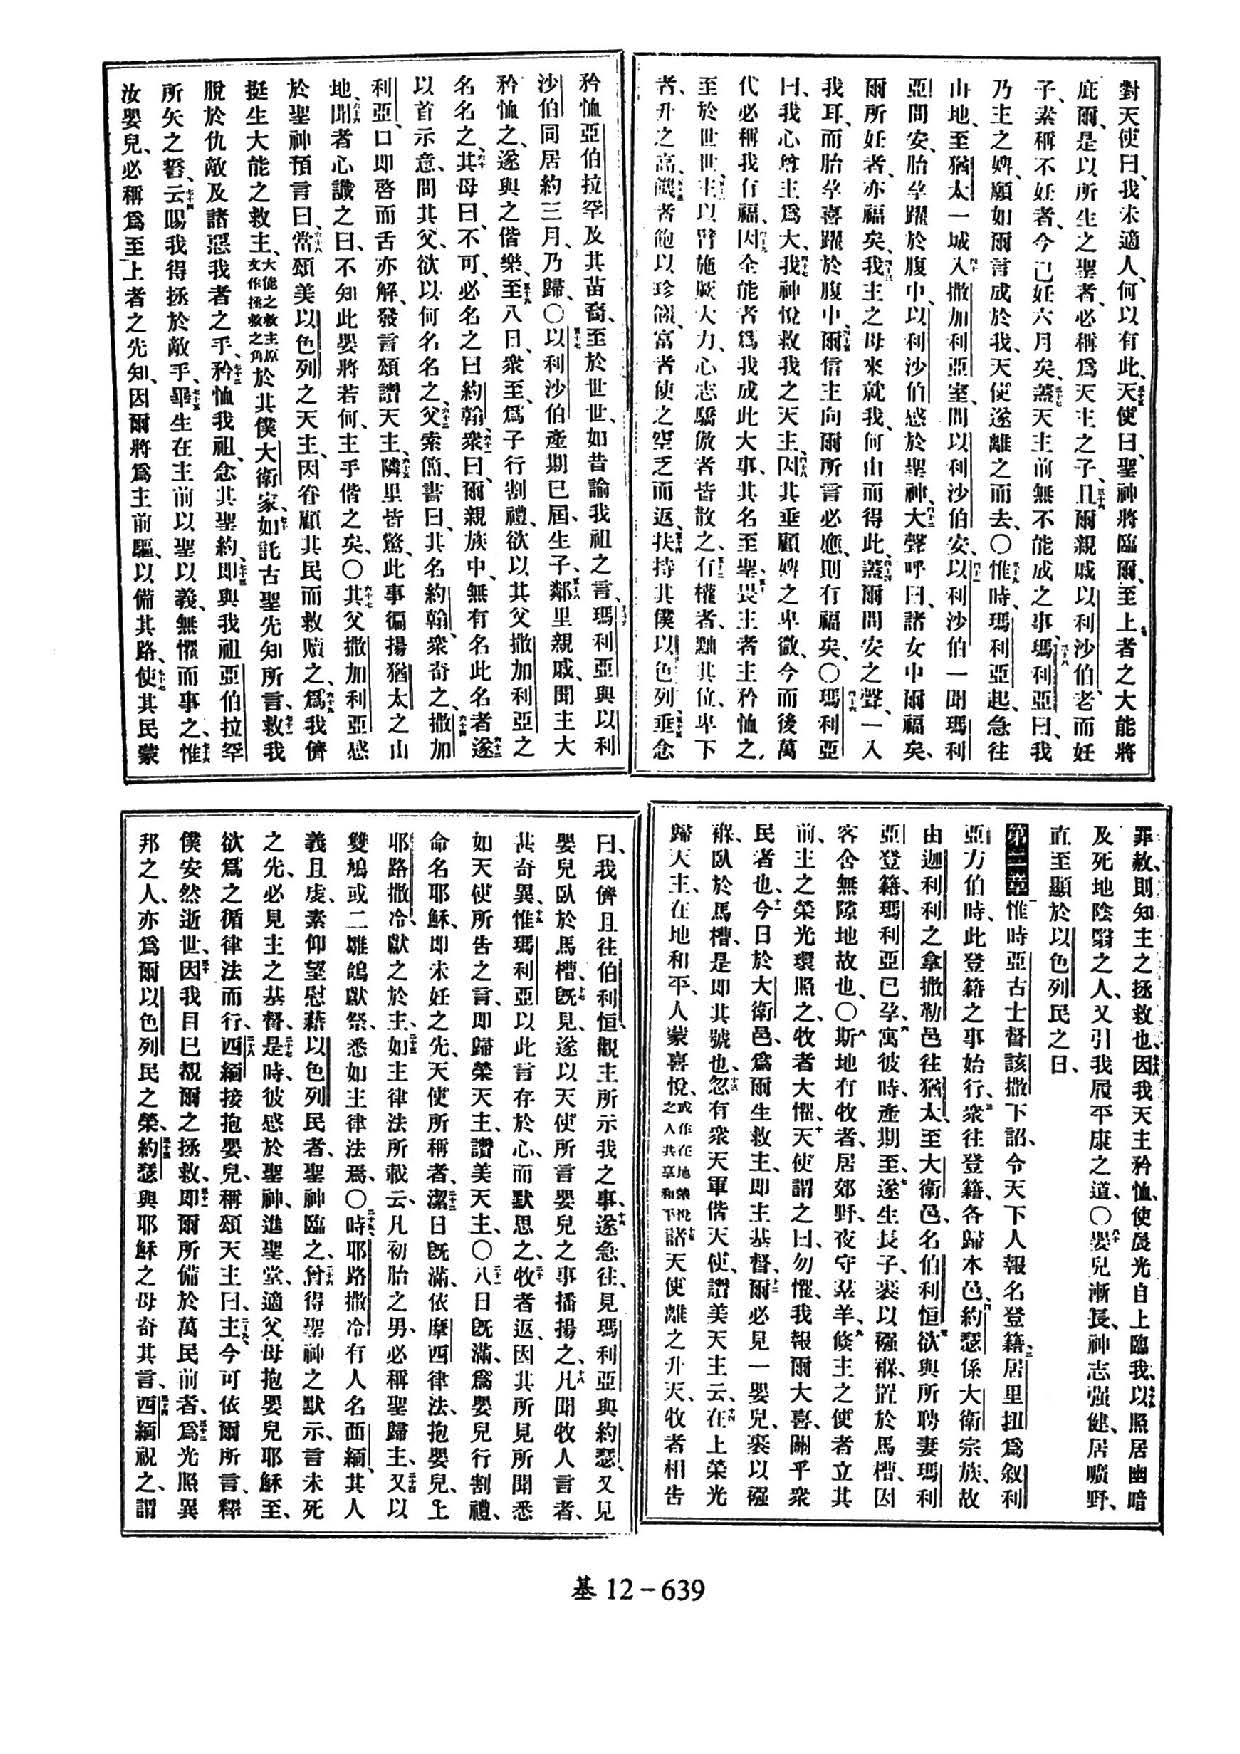 對天使曰、我未適人、何以有此、天使曰、聖神將臨爾、至上者之大能將
庇爾、是以所生之聖者、必稱爲天主之子、且爾親戚以利沙伯、老而妊
子、素稱不妊者、今已妊六月矣、蓋天主前無不能成之事、瑪利亞曰、我
乃主之婢、願如爾言成於我、天使遂離之而去、〇惟時瑪利亞起、急往
山地、至猶太一城、入撒加利亞室、問以利沙伯安、以利沙伯一聞瑪利
亞問安、胎孕躍於腹中、以利沙伯感於聖神、大聲呼曰、諸女中爾福矣、
爾所妊者、亦福矣、我主之母來就我、何由而得此、蓋爾問安之聲、一入
我耳、而胎孕喜躍於腹中、爾信主向爾所言必應、則有福矣、〇瑪利亞
曰、我心尊主爲大、我神悅救我之天主、因其垂顧婢之卑微、今而後萬
代必稱我有福、因全能者爲我成此大事、其名至聖、畏主者主矜恤之、
至於世世、主以臂施厥大力、心志驕傲者皆散之、有權者、黜其位、卑下
者、升之高、饑者飽以珍饈、富者使之空乏而返、扶持其僕以色列、垂念
矜恤亞伯拉罕、及其苗裔、至於世世、如昔諭我祖之言、瑪利亞與以利
沙伯同居約三月、乃歸、〇以利沙伯產期已屆、生子、鄰里親戚、聞主大
矜恤之、遂與之偕樂、至八日、衆至、爲子行割禮、欲以其父撒加利亞之
名名之、其母曰、不可、必名之曰約翰、衆曰、爾親族中、無有名此名者、遂
以首示意、問其父、欲以何名名之、父索簡、書曰、其名約翰、衆奇之、撒加
利亞、口即啓而舌亦解、發言頌讚天主、隣里皆驚、此事徧揚猶太之山
地、聞者心識之曰、不知此嬰將若何、主乎偕之矣、〇其父撒加利亞感
於聖神預言曰、當頌美以色列之天主、因眷顧其民而救贖之、爲我儕
挺生大能之救主、大能之救主原文作拯救之角於其僕大衛家、如託古聖先知所言、救我
脫於仇敵、及諸惡我者之手、矜恤我祖、念其聖約、即與我祖亞伯拉罕
所矢之誓、云賜我得拯於敵手、畢生在主前以聖以義、無懼而事之、惟
汝嬰兒、必稱爲至上者之先知、因爾將爲主前驅、以備其路、使其民蒙
罪赦、則知主之拯救也、因我天主矜恤、使晨光自上臨我、以照居幽暗
及死地陰翳之人、又引我履平康之道、〇嬰兒漸長、神志强健、居曠野、
直至顯於以色列民之日、
第二章惟時亞古士督該撒下詔、令天下人報名登籍、居里扭爲叙利
亞方伯時、此登籍之事始行、衆往登籍、各歸本邑、約瑟係大衛宗族、故
由迦利利之拿撒勒邑往猶太、至大衛邑、名伯利恒、欲與所聘妻瑪利
亞登籍、瑪利亞已孕、寓彼時、產期至、遂生長子、裹以襁褓、置於馬槽、因
客舍無隙地故也、〇斯地有牧者、居郊野、夜守羣羊、倏主之使者立其
前、主之榮光環照之、牧者大懼、天使謂之曰、勿懼、我報爾大喜、關乎衆
民者也、今日於大衛邑、爲爾生救主、即主基督、爾必見一嬰兒、裹以襁
褓、臥於馬槽、是即其號也、忽有衆天軍偕天使、讚美天主云、在上榮光
歸天主、在地和平、人蒙喜悅、或作在地蒙悅之人共享和平諸天使離之升天、牧者相告
曰、我儕且往伯利恒、觀主所示我之事、遂急往、見瑪利亞與約瑟、又見
嬰兒臥於馬槽、旣見、遂以天使所言嬰兒之事播揚之、凡聞牧人言者、
甚奇異、惟瑪利亞、以此言存於心、而默思之、牧者返、因其所見所聞悉
如天使所告之言、即歸榮天主、讚美天主、〇八日旣滿、爲嬰兒行割禮、
命名耶穌、即未妊之先、天使所稱者、潔日旣滿、依摩西律法、抱嬰兒上
耶路撒冷、獻之於主、如主律法所載云、凡初胎之男、必稱聖歸主、又以
雙鳩或二雛鴿獻祭、悉如主律法焉、〇時耶路撒冷有人名西緬、其人
義且虔、素仰望慰藉以色列民者、聖神臨之、曾得聖神之默示、言未死
之先、必見主之基督、是時、彼感於聖神、進聖堂、適父母抱嬰兒耶穌至、
欲爲之循律法而行、西緬接抱嬰兒、稱頌天主曰、主今可依爾所言、釋
僕安然逝世、因我目已覩爾之拯救、即爾所備於萬民前者、爲光照異
邦之人、亦爲爾以色列民之榮、約瑟與耶穌之母奇其言、西緬祝之、謂
基 12-639